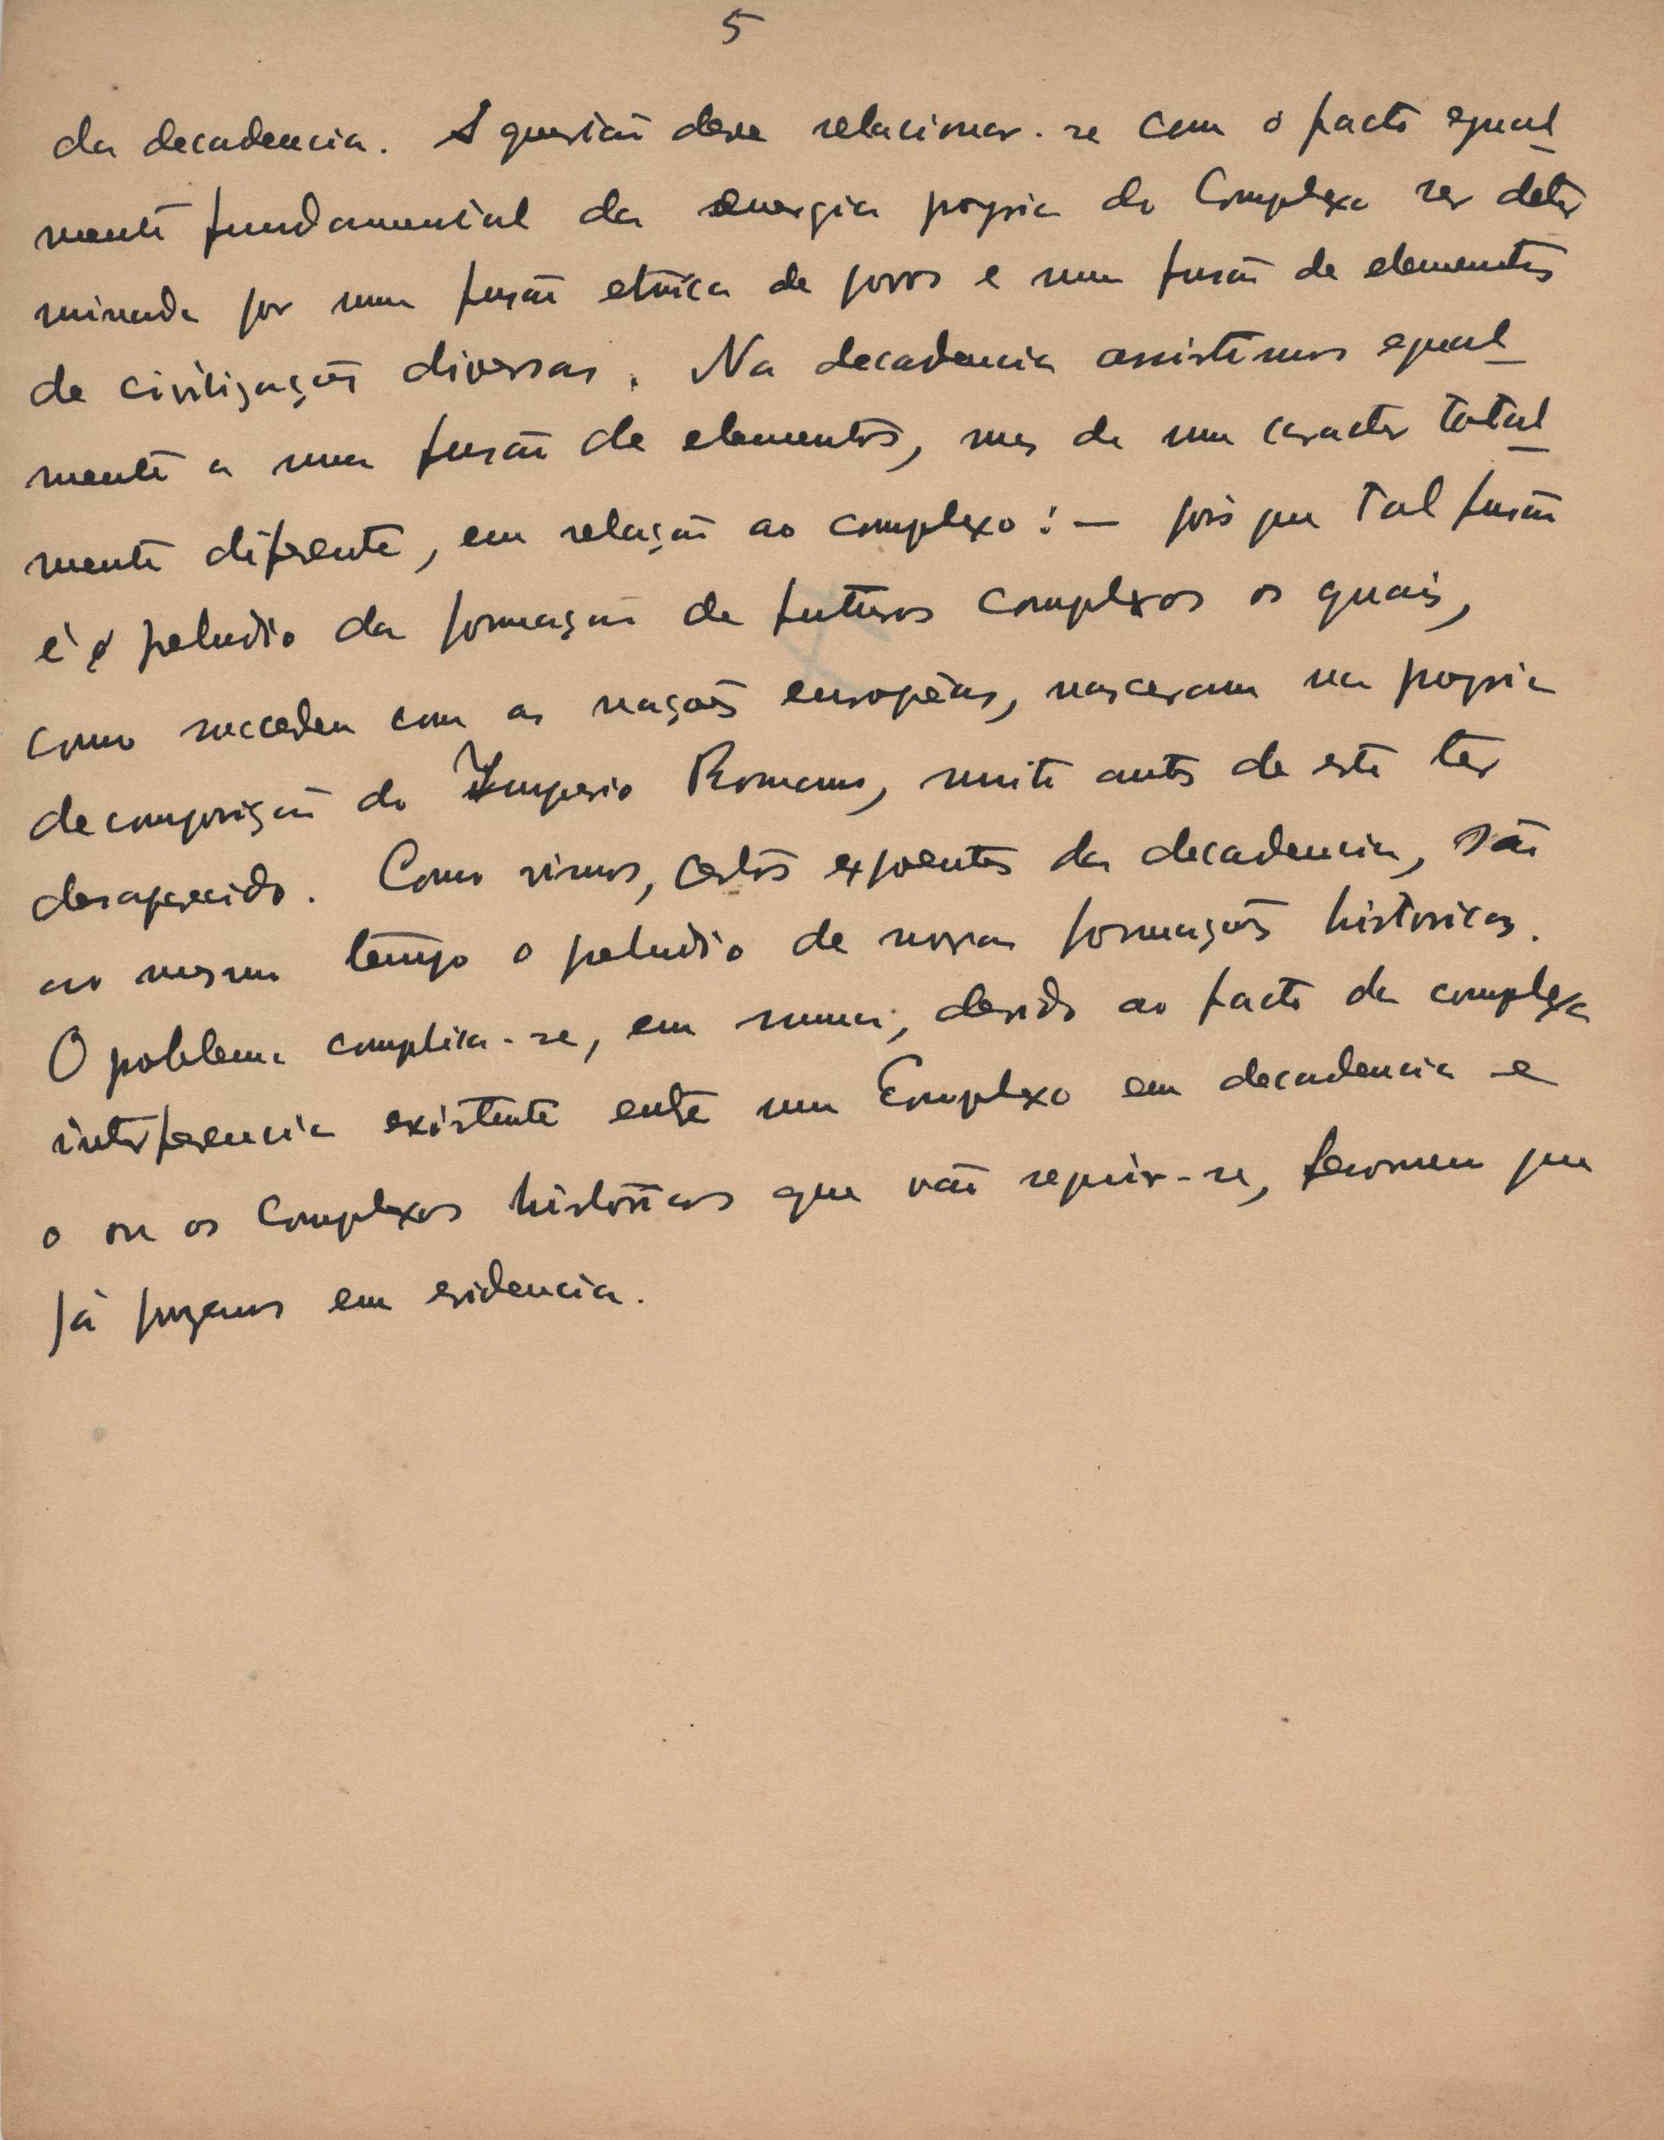 5
da decadencia. A questão deve relacionar-se com o facto egual_
mente fundamental da energia propria do Complexo ser deter
minada por uma fusão etnica de povos e uma fusão de elementos
de civilizações diversas. Na decadencia assistimos egual_
mente a uma fusão de elementos, mas de um caracter total_
mente diferente, em relação ao complexo: — pois que tal fusão
é o preludio da formação de futuros complexos os quais,
como succedeu com as nações européas, nasceram na propria
decomposição do Imperio Romano, muito antes de este ter
desaparecido. Como vimos, certos expoentes da decadencia, são
ao mesmo tempo o preludio de novas formações historicas.
O problema complica-se, em suma, devido ao facto da complexa
interferencia existente entre um Complexo em decadencia e
o ou os Complexos históricos que vão seguir-se, fenomeno que
já puzemos em evidencia.